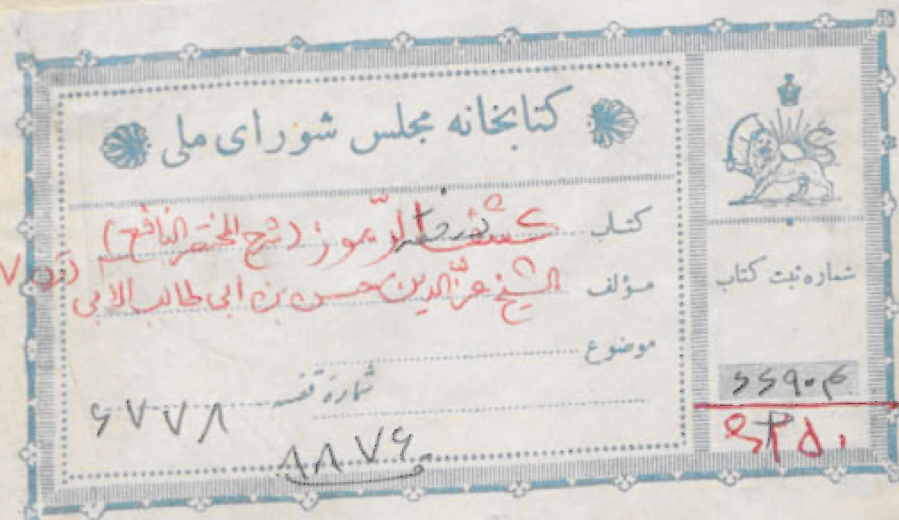 کتابخانه مجلس شورای ملی
کتاب کشف الرموز (شرح المختصر النافع)
مؤلف الشیخ عزالدین حسن بن ابی طالب الابی
موضوع
شماره قفسه
۶۷۷۸
۸۸۷۶
شماره ثبت کتاب